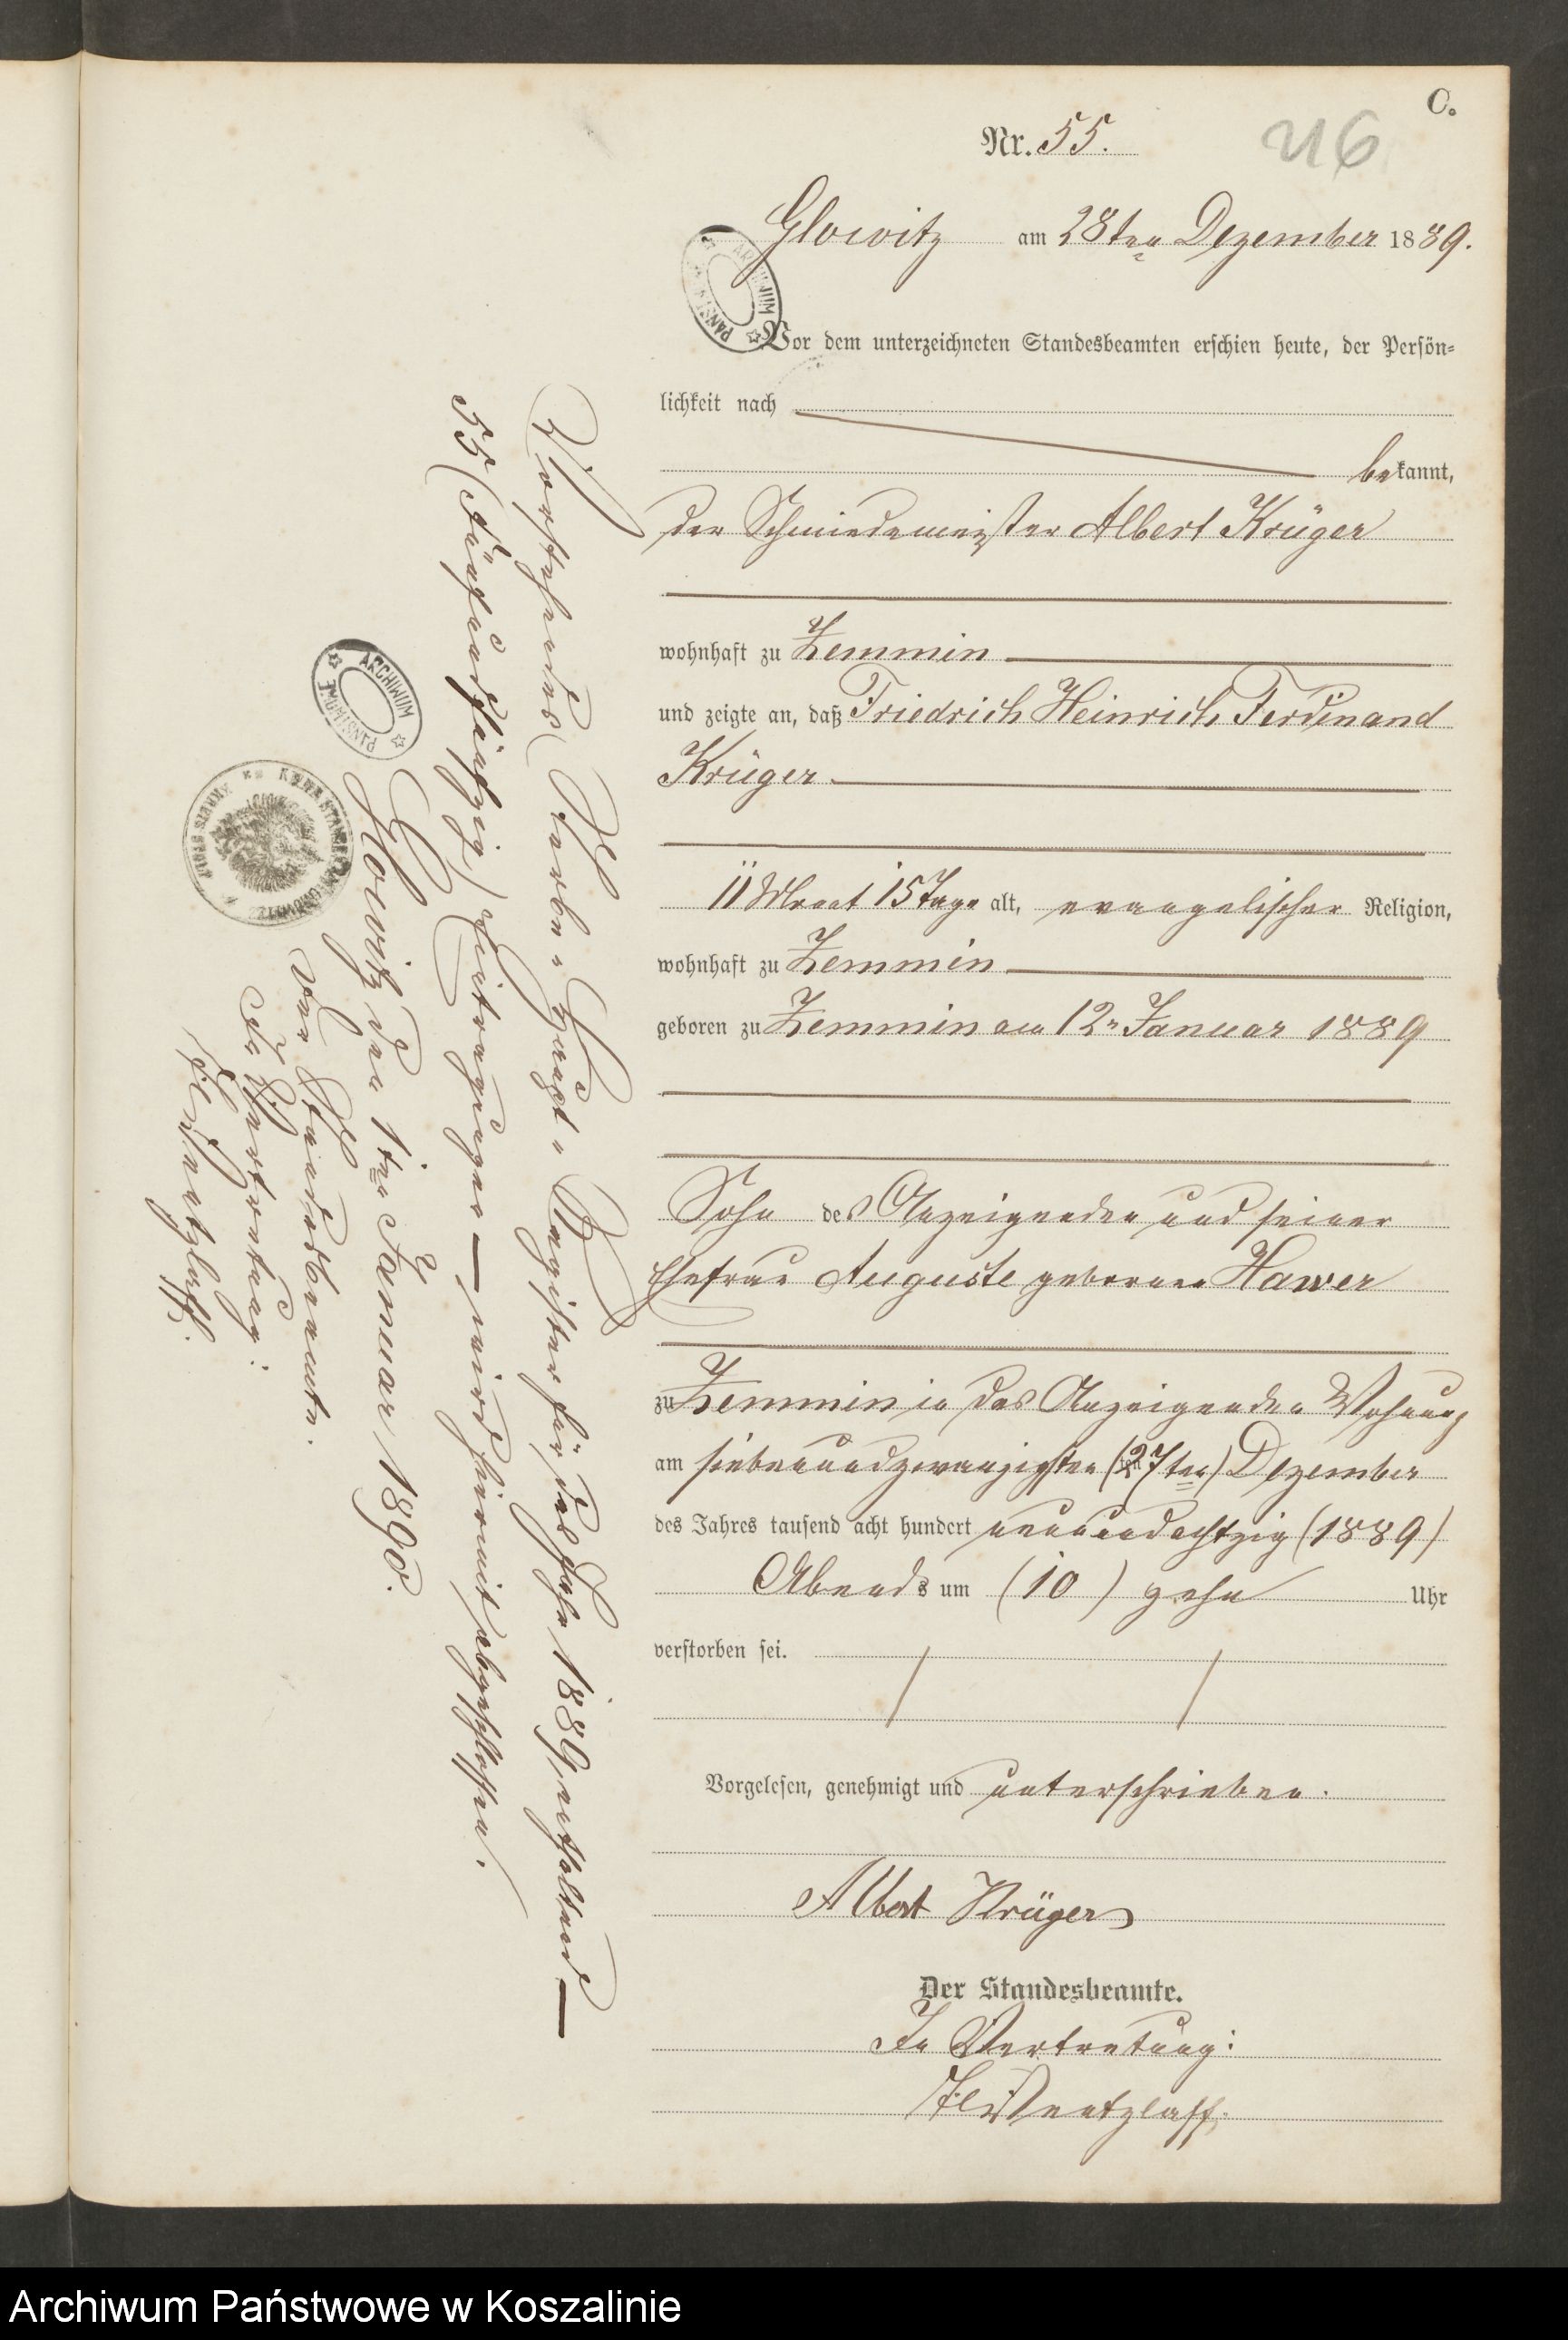 C.
Nr. 55.
46
Glowitz am 28ten Dezember 1889.
Vor dem unterzeichneten Standesbeamten erschien heute, der Persön-
lichkeit nach
bekannt,
der Schmiedemeister Albert Krüger
wohnhaft zu Zemmin
und zeigte an, daß Friedrich Heinrich Ferdinand
Krüger.
11 Monat 15 Tage alt, evangelischer Religion,
wohnhaft zu Zemmin
geboren zu Zemmin am 12n Januar 1889
Sohn des Anzeigenden und seiner
Ehefrau Auguste geborene Hawer
zu Zemmin in des Anzeigenden Wohnung
am siebenundzwanzigsten (27ten) Dezember
des Jahres tausend acht hundert neunundachtzig (1889)
Abends um (10) zehn Uhr
verstorben sei.
Vorgelesen, genehmigt und unterschrieben.
Albert Krüger
Der Standesbeamte.
In Vertretung:
Wentzlaff.
Vorstehendes Sterbe- Haupt- Register für das Jahr 1889, enthaltend
55 (Fünfundfünfzig) Eintragungen wird hiermit abgeschlossen.
Glowitz, den 1ten Januar 1890.
Der Standesbeamte.
In Vertretung:
Wentzlaff.
ARCHIWUM PAŃSTWOWE
ARCHIWUM PAŃSTWOWE
Archiwum Państwowe w Koszalinie